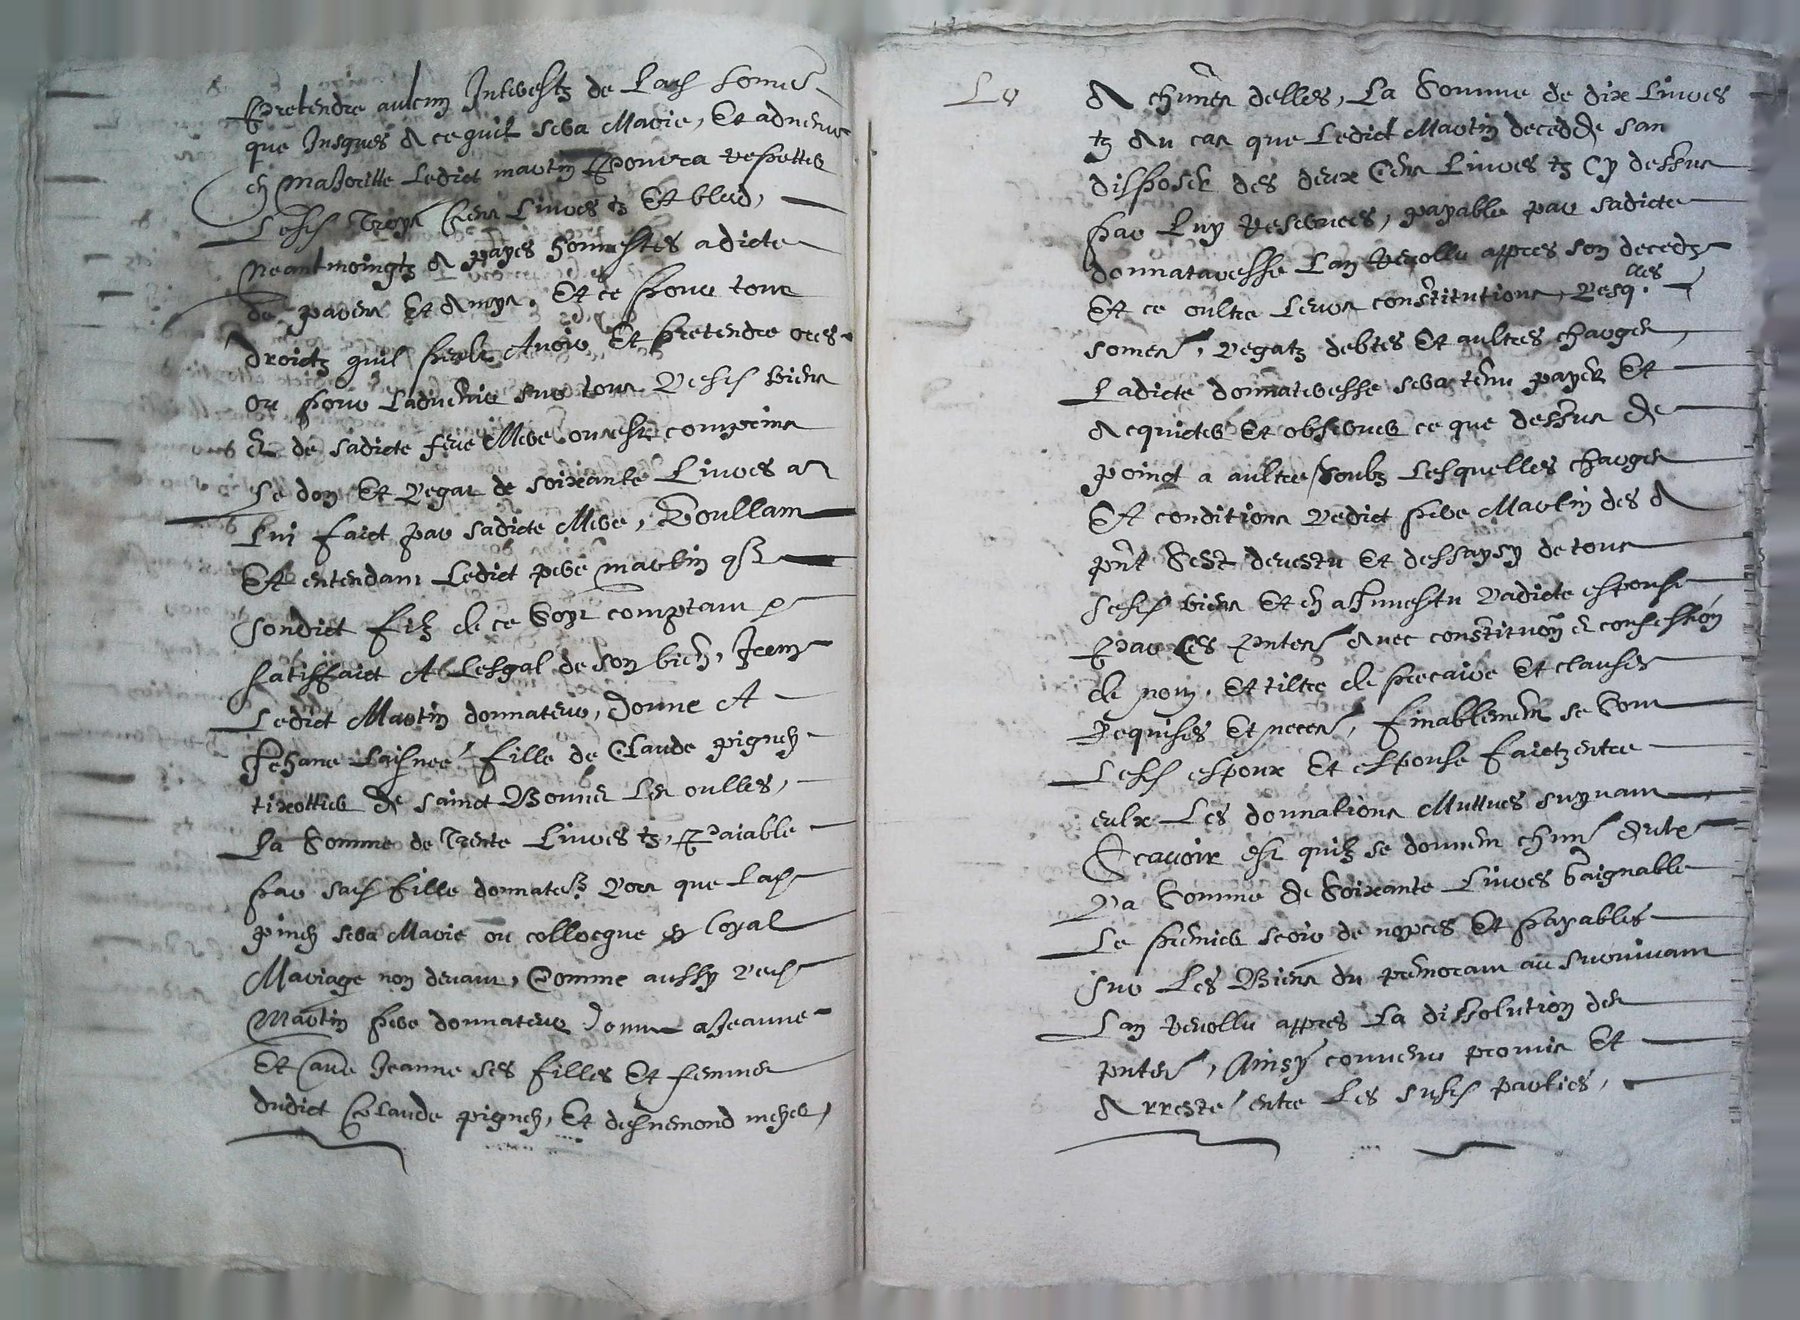 Pretendre aulcun Interestz de Lad somme
que Jusques A ce quil sera Marie, Et advenue
en majoritte Ledict martin Pourra repetter
Lesd Troys cens Livres tz Et bled,
Neantmoingtz A payes honnestes a dicte
de parens Et Amys. Et ce pour tous
droictz quil peult Avoir Et pretendre ores
ou pour Ladvenir sur tous Lesd biens
de sadicte feue Mere ou est comprins
Le don Et Legat de soixante Livres
Lui faict par sadicte Mere, Voullant
Et entendant Ledict pere martin
Sondict filz de ce Soyt comptant
satisfaict A Lesgal de son bien, Item
Ledict Martin donnateur, donne A
Jehane Laisnee fille de Claude pigney
tixottier de sainct Bonnet Les oulles,
La Somme de Trente Livres tz, Paiable
par sad fille Lors que Lad
piney sera Marie ou collocque en Loyal
Mariage non devant, Comme aussy Led
Martin pere donnateur Donne a Jeanne
Et aue Jeanne ses filles Et femmes
dudict Claude pigney, Et desnemond
A chunes delles, La Somme de dix Livres
tz Au cas que Ledict Martin decedde san
disposer des deux Cens Livres tz Cy dessus
par Luy Reservees, payable par sadicte
donnataresse Lan Revollu appres son decedz
Et ce oultre Leurs constitutions, Lesq.lles
somes, Legatz debtes Et aultres charges,
Ladicte donnateresse sera tenu payer Et
Acquicter Et observer ce que dessus de
poinct a aultre, Soubz Lesquelles charges
Et conditions Ledict pere Martin des A
pnt Sest devestu Et dessaysy de tous
sesd biens Et en a Jnvestu Ladicte espouse
Par Ces pntes Avec constituon & confession
de nom, Et tiltre de precaire Et clauses
Requises Et neces, finablement se Sont
Lesd espoux Et espouse faictz entre
eulx Les donnations Muttues suyvant
Scavoir est quilz se donnent chun deulx
La Somme de Soixante Livres Gaignable
Le premier soir de nopces Et payables
sur Les Biens du premorant au survivant
Lan Revollu appres La dissolution des
pntes, Ainsy convenu promis Et
Arreste entre Les susd parties,